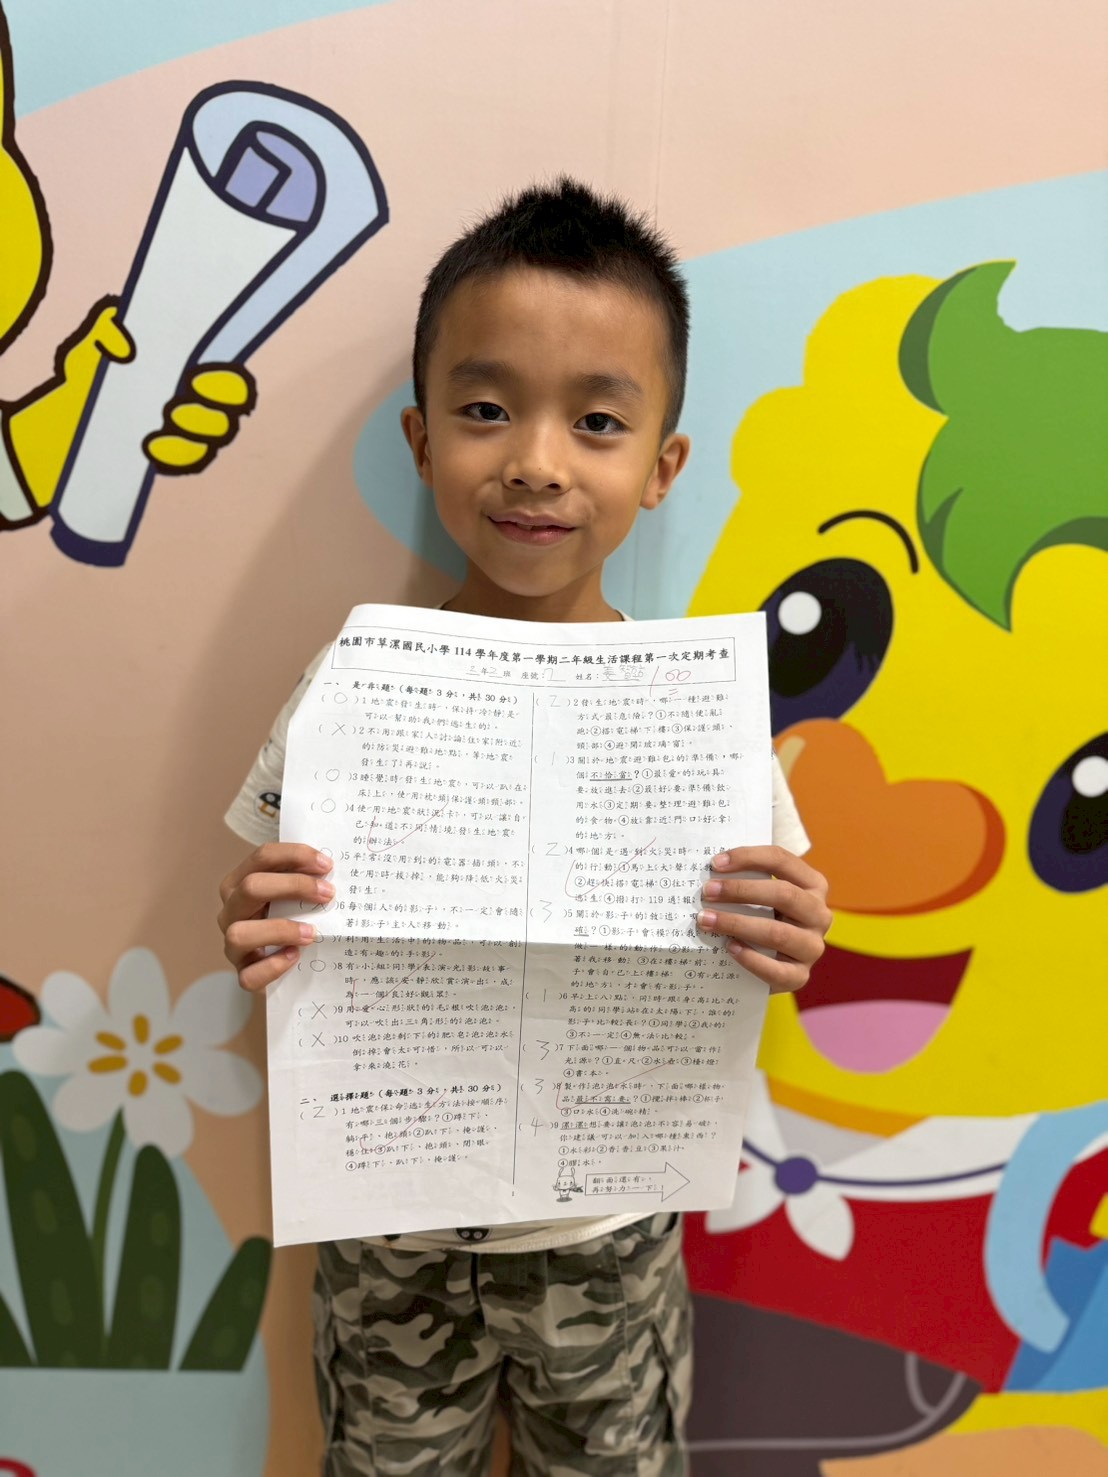 桃園市草漯國民小學 114 學年度第一學期二年級生活課程第一次定期考查
二年2班 座號：2 姓名： 100
一、 是非題（每題 3 分，共 30 分）
( O )1 地震發生時，保持冷靜是
可以幫助我們逃生的。
( X )2 不用跟家人討論住家附近
的防災避難地點，等地震
發生了再說。
( O )3 睡覺時發生地震，可以趴在
床上，使用枕頭保護頭頸部。
( O )4 使用地震狀況卡，可以讓自
己知道不同情境發生地震
的辦法。
)5 平常沒用到的電器插頭，不
使用時拔掉，能夠降低火災
發生。
( X )6 每個人的影子，不一定會隨
著影子主人移動。
)7 利用生活中的物品，可以創
造有趣的手影。
( O )8 有小組同學表演光影故事
時，應該安靜欣賞演出，成
為一個良好觀眾。
( X )9 用愛心形狀的毛根吹泡泡，
可以吹出三角形的泡泡。
( X )10 吹泡泡剩下的肥皂泡泡水
倒掉會太可惜，所以可以
拿來澆花。
二、 選擇題（每題 3 分，共 30 分）
( 2 )1 地震保命逃生方法按順序
有哪三個步驟？①蹲下、
躺平、抱頭 ②趴下、掩護、
穩住 ③趴下、抱頭、閉眼
④蹲下、趴下、掩護。
( 2 )2 發生地震時，哪一種避難
方式最危險？①不隨便亂
跑 ②搭電梯下樓 ③保護頭
頸部 ④避開玻璃窗。
( 1 )3 關於地震避難包的準備，哪
個不恰當？①最愛的玩具
要放進去 ②最好要準備飲
用水 ③定期要整理避難包
的食物 ④放靠近門口好拿
的地方。
( 2 )4 哪個是遇到火災時，最
的行動①馬上大聲求救
②趕快搭電梯 ③往下
逃生 ④撥打 119 通報
( 3 )5 關於影子的敘述，哪
？①影子會模仿我，
做一樣的動作 ②影子會
著我移動 ③在樓梯前，影
子會自己上樓梯 ④有光源
的地方，才會有影子。
( 1 )6 早上八點，同時跟身高比我
高的同學站在太陽下，誰的
影子比較長？①同學 ②我的
③不一定 ④無法比較。
( 3 )7 下面哪一個物品可以當作
光源？①直尺 ②水壺 ③檯燈
④書本。
( 3 )8 製作泡泡水時，下面哪樣物
品最不需要？①攪拌棒 ②杯子
③口水 ④洗碗精。
( 4 )9 漯漯想要讓泡泡不容易破，
你建議可以加入哪種東西？
①水彩 ②香香豆 ③果汁
④膠水。
翻面還有，
再努力一下！
1